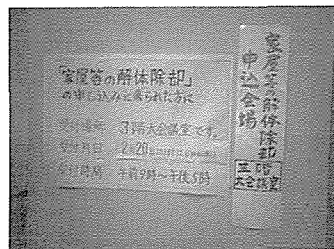 「家屋等の解体除却」
の申し込みに来られた方に
受付場所 3階大会議室です。
受付月日 2月20日
受付時間 午前9時～午後5時
家屋等の解体除却
申込会場
三階
大会議室